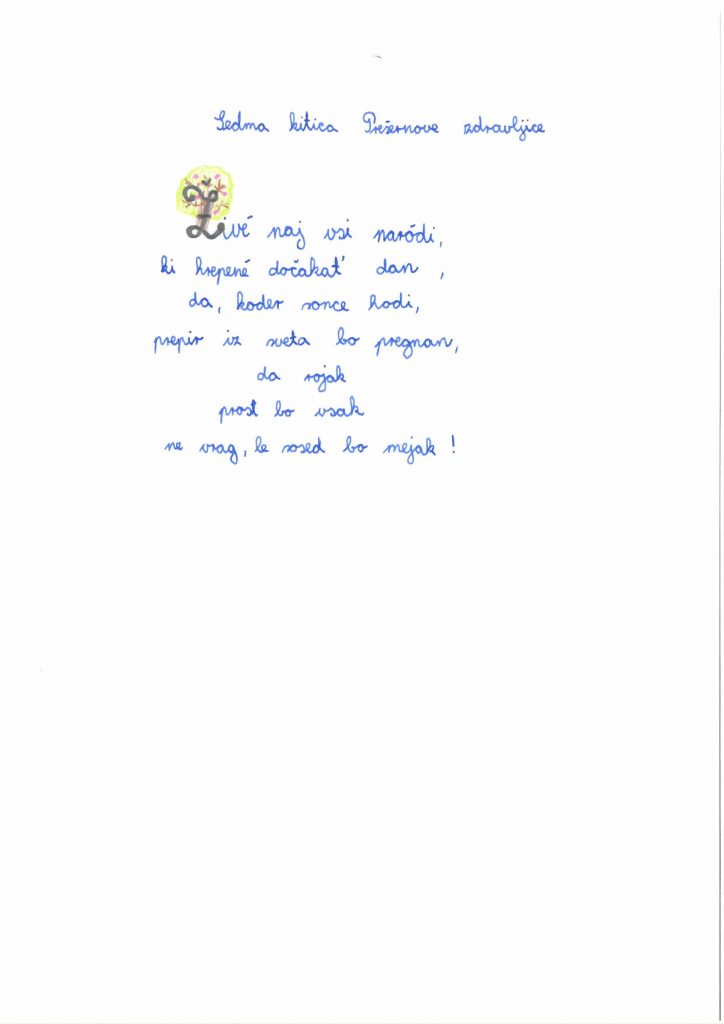 Sedma kitica Prešernove zdravljice
Živé naj vsi naródi,
ki hrepené dočakat' dan ,
da, koder sonce hodi,
prepir iz sveta bo pregnan,
da rojak
prost bo vsak
ne vrag, le sosed bo mejak !